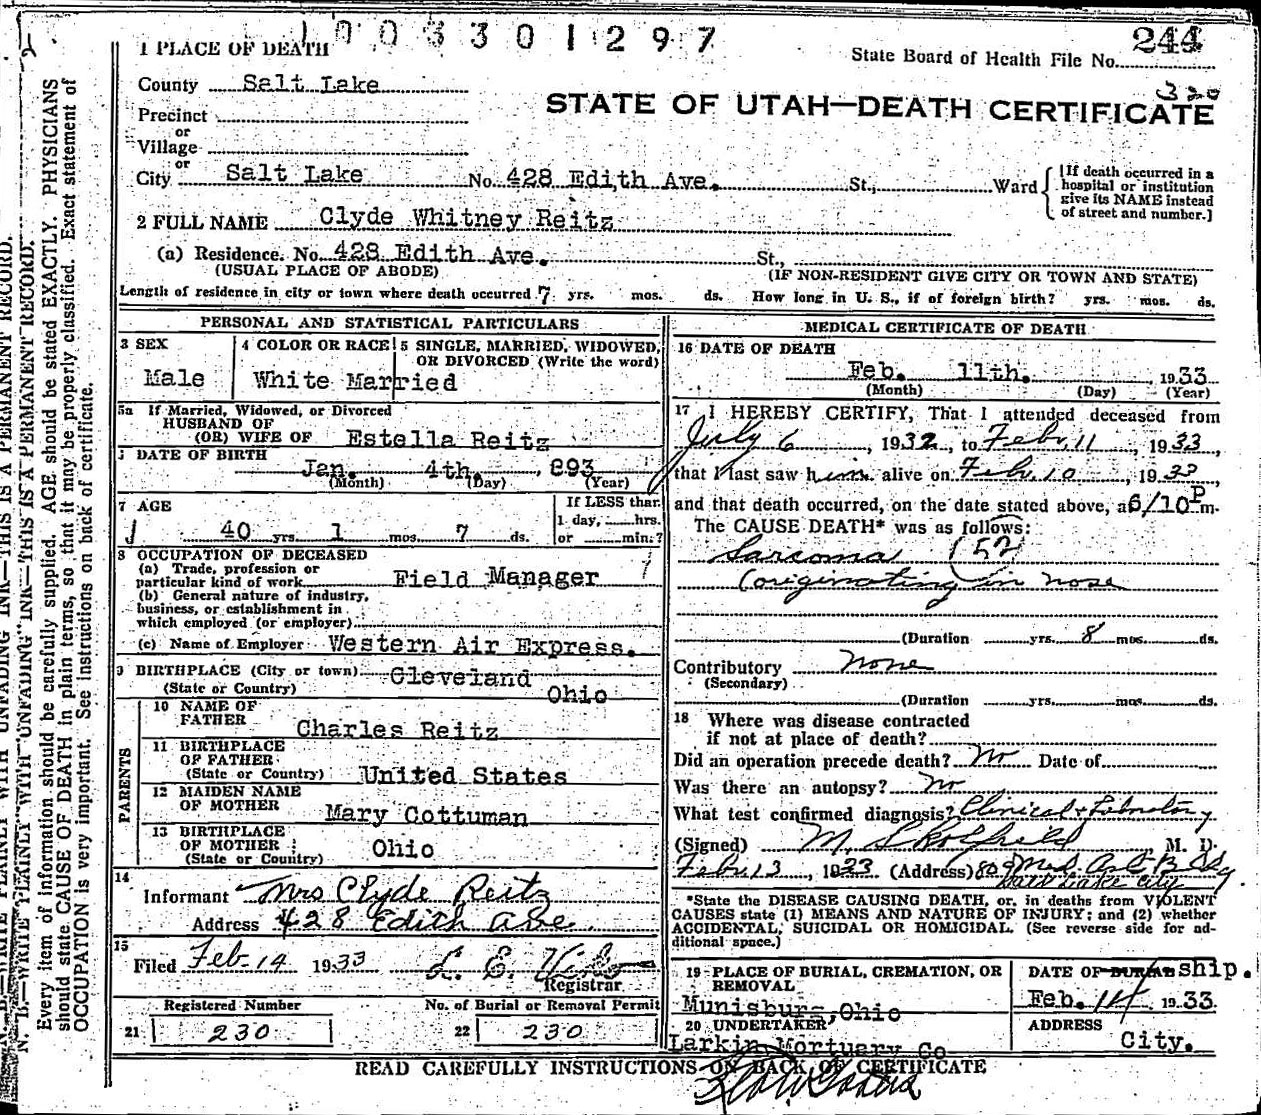 1003301297
244
1 PLACE OF DEATH
State Board of Health File No.
County Salt Lake
320
STATE OF UTAH—DEATH CERTIFICATE
Precinct
or
Village
or
City Salt Lake No. 428 Edith Ave. St., Ward
[If death occurred in a hospital or institution give its NAME instead of street and number.]
2 FULL NAME Clyde Whitney Reitz
(a) Residence. No. 428 Edith Ave. St.,
(USUAL PLACE OF ABODE) (IF NON-RESIDENT GIVE CITY OR TOWN AND STATE)
Length of residence in city or town where death occurred 7 yrs. mos. ds. How long in U. S., if of foreign birth? yrs. mos. ds.
PERSONAL AND STATISTICAL PARTICULARS
3 SEX
Male
4 COLOR OR RACE
White
5 SINGLE, MARRIED, WIDOWED,
OR DIVORCED (Write the word)
Married
5a If Married, Widowed, or Divorced
HUSBAND OF
(OR) WIFE OF Estella Reitz
DATE OF BIRTH
Jan. 4th. , 893
(Month) (Day) (Year)
7 AGE
40 yrs. 1 mos. 7 ds.
If LESS than
1 day, hrs.
or min.?
8 OCCUPATION OF DECEASED
(a) Trade, profession or
particular kind of work Field Manager
(b) General nature of industry,
business, or establishment in
which employed (or employer)
(c) Name of Employer Western Air Express.
9 BIRTHPLACE (City or town) Cleveland
(State or Country) Ohio
PARENTS
10 NAME OF
FATHER Charles Reitz
11 BIRTHPLACE
OF FATHER
(State or Country) United States
12 MAIDEN NAME
OF MOTHER Mary Cottuman
13 BIRTHPLACE
OF MOTHER
(State or Country) Ohio
14
Informant Mrs Clyde Reitz
Address 428 Edith Ave
15
Filed Feb 14 1933
Registrar
Registered Number No. of Burial or Removal Permit
21 230 22 230
MEDICAL CERTIFICATE OF DEATH
16 DATE OF DEATH
Feb. 11th. , 1933
(Month) (Day) (Year)
17 I HEREBY CERTIFY, That I attended deceased from
July 6, 1932, to Feby 11, 1933,
that I last saw him alive on Feb. 10, 1933,
and that death occurred, on the date stated above, at 6/10 P m.
The CAUSE DEATH* was as follows:
Sarcoma (52
(originating in nose
(Duration yrs. 8 mos. ds.
Contributory none
(Secondary)
(Duration yrs. mos. ds.
18 Where was disease contracted
if not at place of death?
Did an operation precede death? No Date of
Was there an autopsy? No
What test confirmed diagnosis? Clinical + Laboratory
(Signed) M. Skolfield M. D.
Feby 13, 1933 (Address) 809 Med Arts Bldg
Salt Lake City
*State the DISEASE CAUSING DEATH, or, in deaths from VIOLENT
CAUSES state (1) MEANS AND NATURE OF INJURY; and (2) whether
ACCIDENTAL, SUICIDAL OR HOMICIDAL. (See reverse side for ad-
ditional space.)
19 PLACE OF BURIAL, CREMATION, OR
REMOVAL
Munisburg, Ohio
DATE OF BURIAL ship.
Feb. 14 1933
20 UNDERTAKER
Larkin Mortuary Co
ADDRESS
City.
READ CAREFULLY INSTRUCTIONS ON BACK OF CERTIFICATE
N. B.—WRITE PLAINLY WITH UNFADING INK—THIS IS A PERMANENT RECORD.
Every item of information should be carefully supplied. AGE should be stated EXACTLY. PHYSICIANS
should state CAUSE OF DEATH in plain terms, so that it may be properly classified. Exact statement of
OCCUPATION is very important. See instructions on back of certificate.